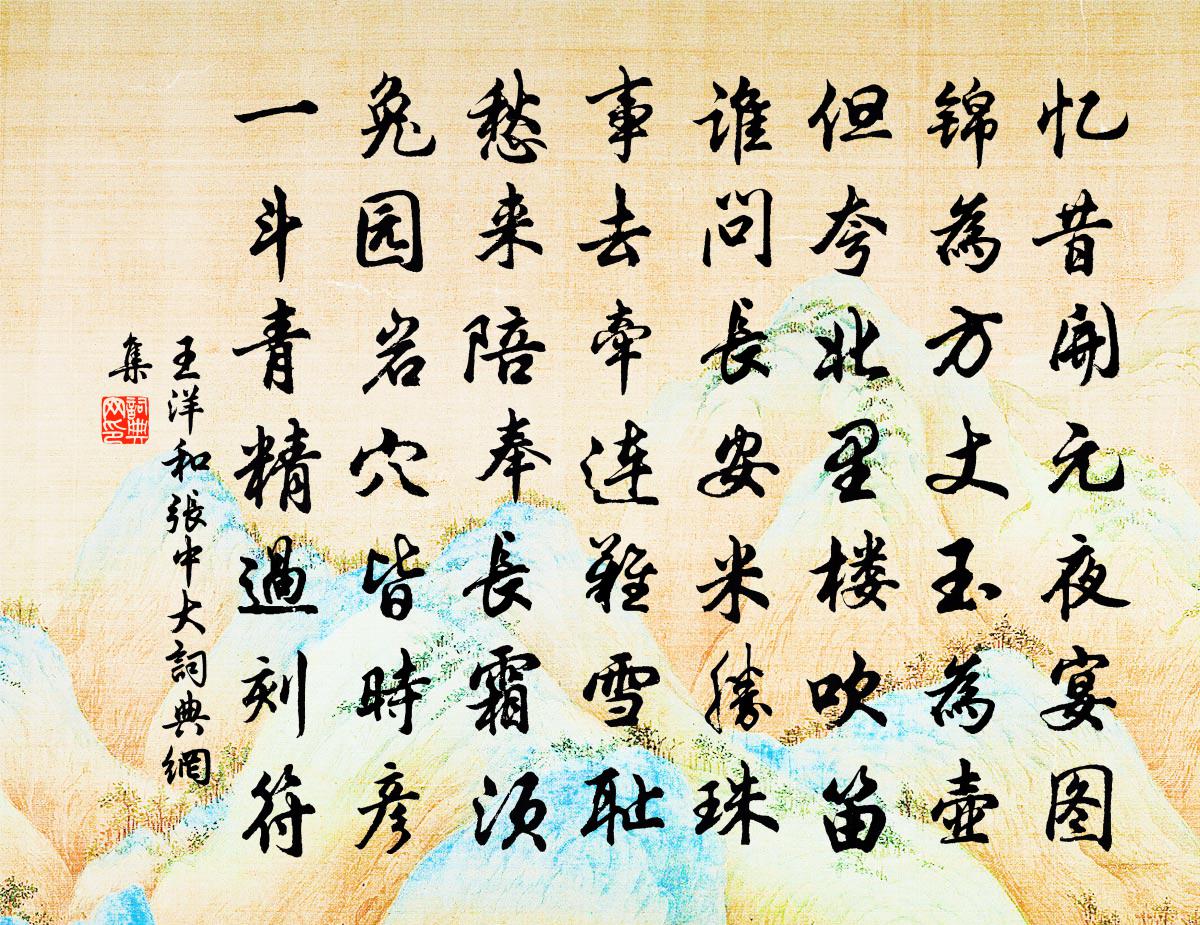 忆昔開元夜宴图
锦為方丈玉為壶
但夸北里楼吹笛
谁问長安米勝珠
事去牵连難雪耻
愁来陪奉長霜须
兔园岩穴皆時彦
一斗青精過刻符
王洋和張中大詞典網
集
詞典
网印